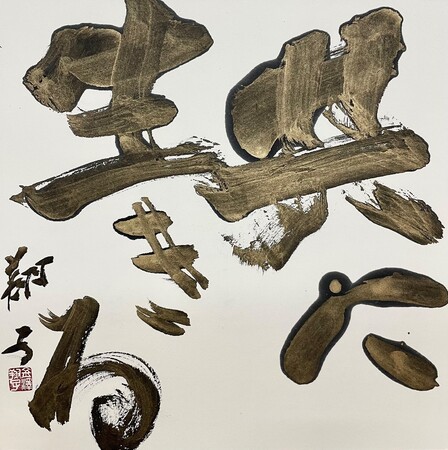 共に
生きる
翔子